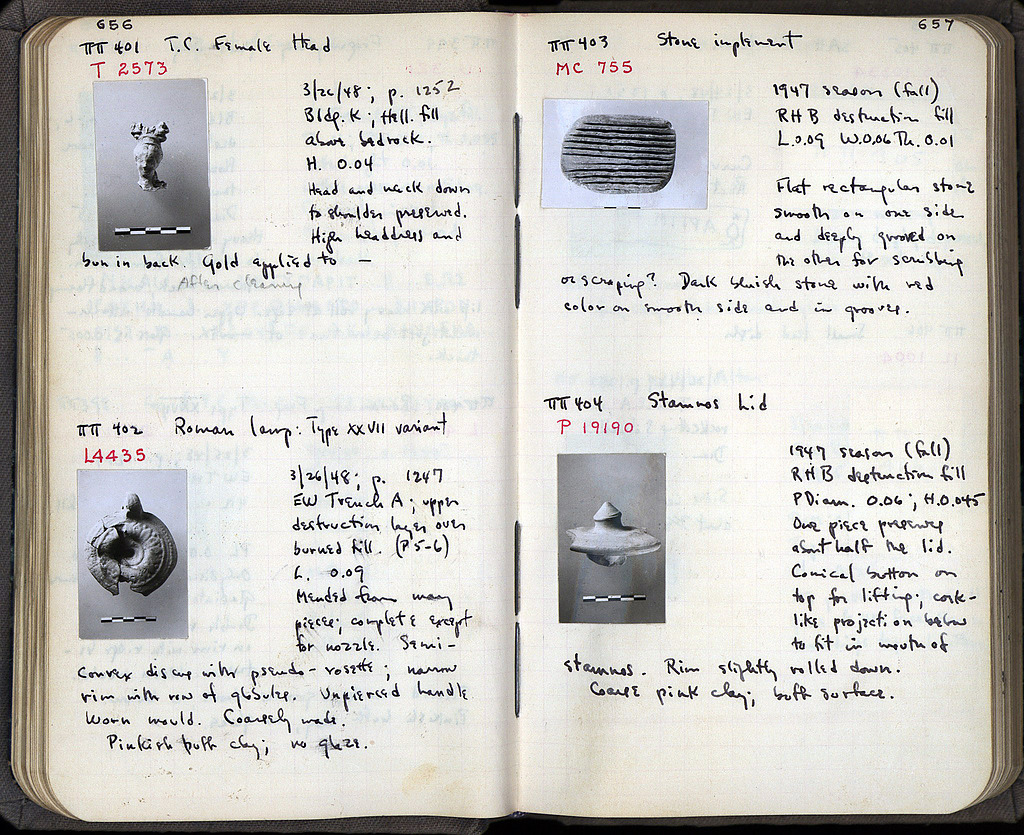 656
ΠΠ 401 T.C. Female Head
T 2573
3/26/48; p. 1252
Bldg. K; Hell. fill
above bedrock.
H. 0.04
Head and neck down
to shoulder preserved.
High headdress and
bun in back. Gold applied to —
After cleaning
ΠΠ 402 Roman lamp: Type XXVII variant
L4435
3/26/48; p. 1247
EW Trench A; upper
destruction layer over
burned fill. (P 5-6)
L. 0.09
Mended from many
pieces; complete except
for nozzle. Semi-
convex discus with pseudo-rosette; narrow
rim with row of globules. Unpierced handle
Worn mould. Coarsely made.
Pinkish buff clay; no glaze.
657
ΠΠ 403 Stone implement
MC 755
1947 season (fall)
RHB destruction fill
L.0.09 W.0.06 Th. 0.01
Flat rectangular stone
smooth on one side
and deeply grooved on
the other for scrubbing
or scraping? Dark bluish stone with red
color on smooth side and in grooves.
ΠΠ 404 Stamnos Lid
P 19190
1947 season (fall)
RHB destruction fill
P Diam. 0.06; H.0.045
One piece preserves
about half the lid.
Conical button on
top for lifting; cork-
like projection below
to fit in mouth of
stamnos. Rim slightly rolled down.
Coarse pink clay; buff surface.